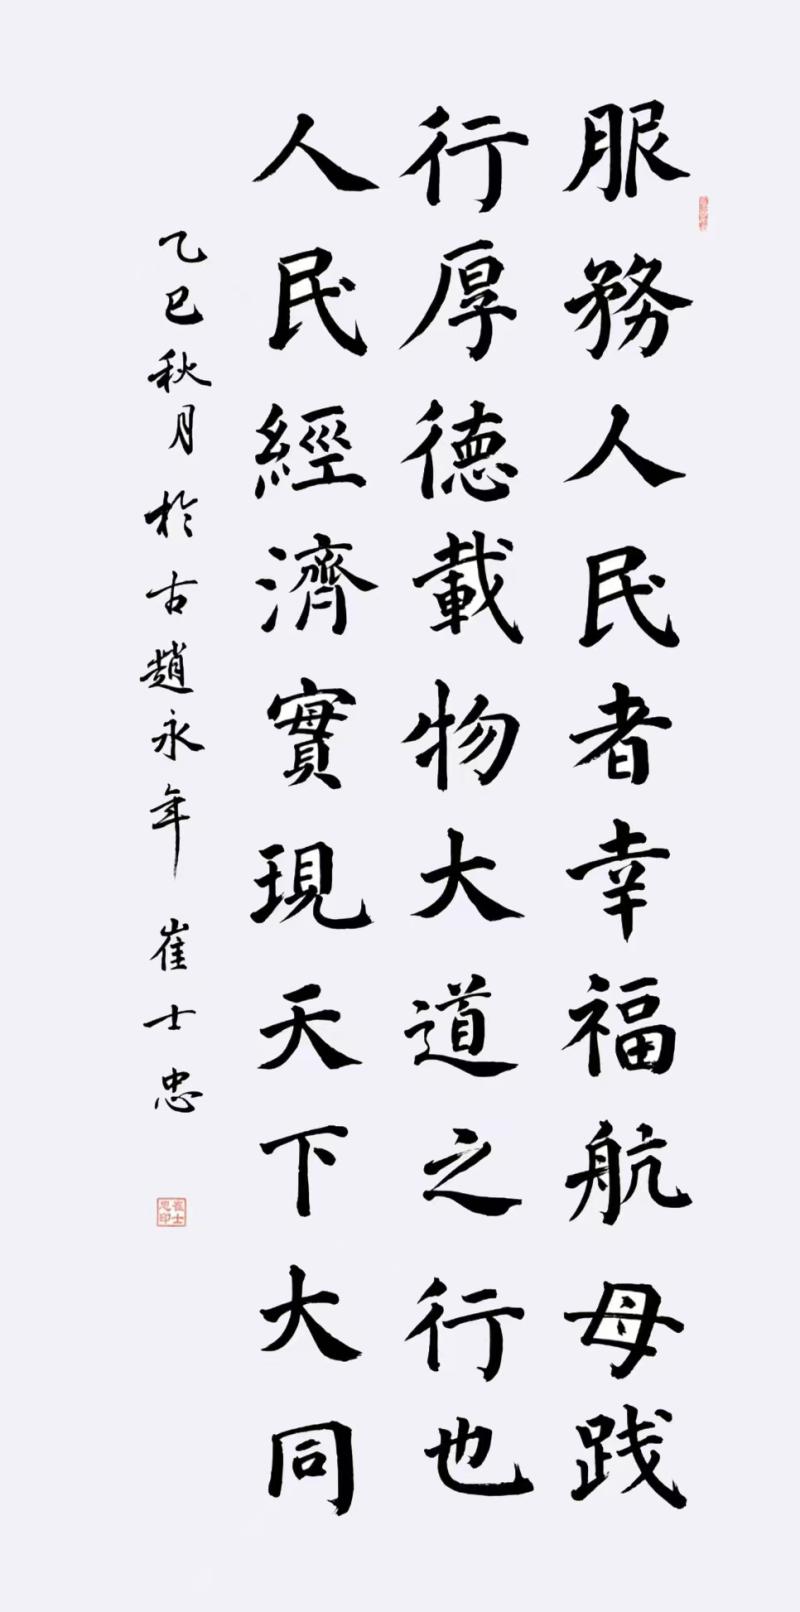 服務人民者幸福航母践
行厚德載物大道之行也
人民經濟實現天下大同
乙巳秋月於古趙永年 崔士忠
崔士忠印